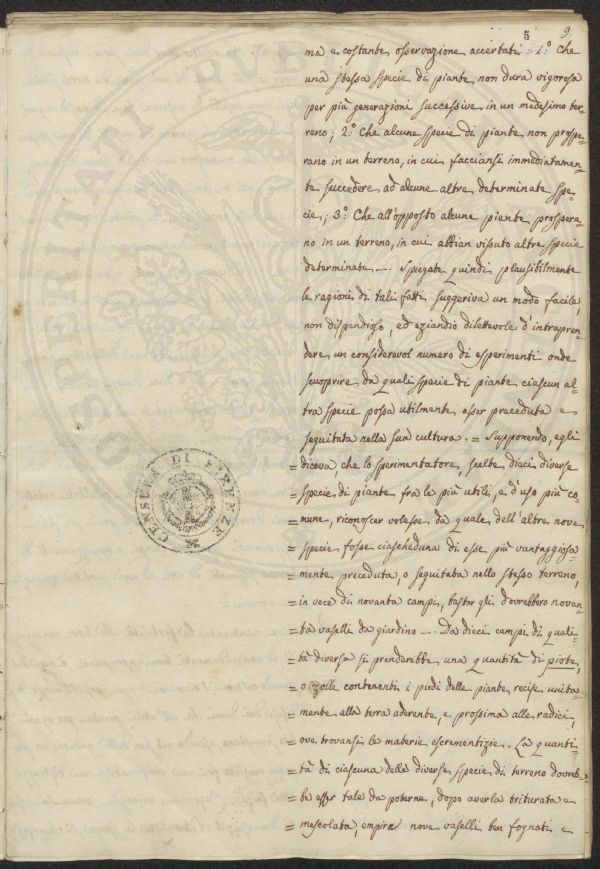 5 9
ma e costante osservazione accertati: 1.° Che
una stessa specie di piante non dura vigorosa
per più generazioni successive in un medesimo ter-
reno; 2.° Che alcune specie di piante non prospe-
rano in un terreno, in cui facciansi immediatamen-
te succedere ad alcune altre determinate spe-
cie; 3.° Che all'opposto alcune piante prospera-
no in un terreno, in cui abbian vissuto altre specie
determinate. — Spiegate quindi plausibilmente
le ragioni di tali fatti, suggeriva un modo facile,
non dispendioso, ed eziandio dilettevole d'intrapren-
dere un considerevol numero di esperimenti onde
scuoprire da quali specie di piante ciascun al-
tra specie possa utilmente esser preceduta e
seguitata nella sua cultura. = Supponendo, egli
= diceva, che lo sperimentatore, scelte dieci diverse
= specie di piante fra le più utili, e d'uso più co-
= mune, riconoscer volesse da quale dell'altre nove
= specie fosse ciascheduna di esse più vantaggiosa-
= mente preceduta, o seguitata nello stesso terreno,
= in vece di novanta campi, bastar gli dovrebbero novan-
= ta vaselli da giardino —. Da dieci campi di quali-
= tà diversa si prenderebbe una quantità di piote,
= o zolle contenenti i piedi delle piante recise unita-
= mente alla terra aderente, e prossima alle radici,
= ove trovansi le materie escrementizie. La quanti-
= tà di ciascuna delle diverse specie di terreno dovreb-
= be esser tale da poterne, dopo averla triturata e
= mescolata, empire nove vaselli ben fognati e
CENSURA DI FIRENZE
PROSPERITATI PUBLI